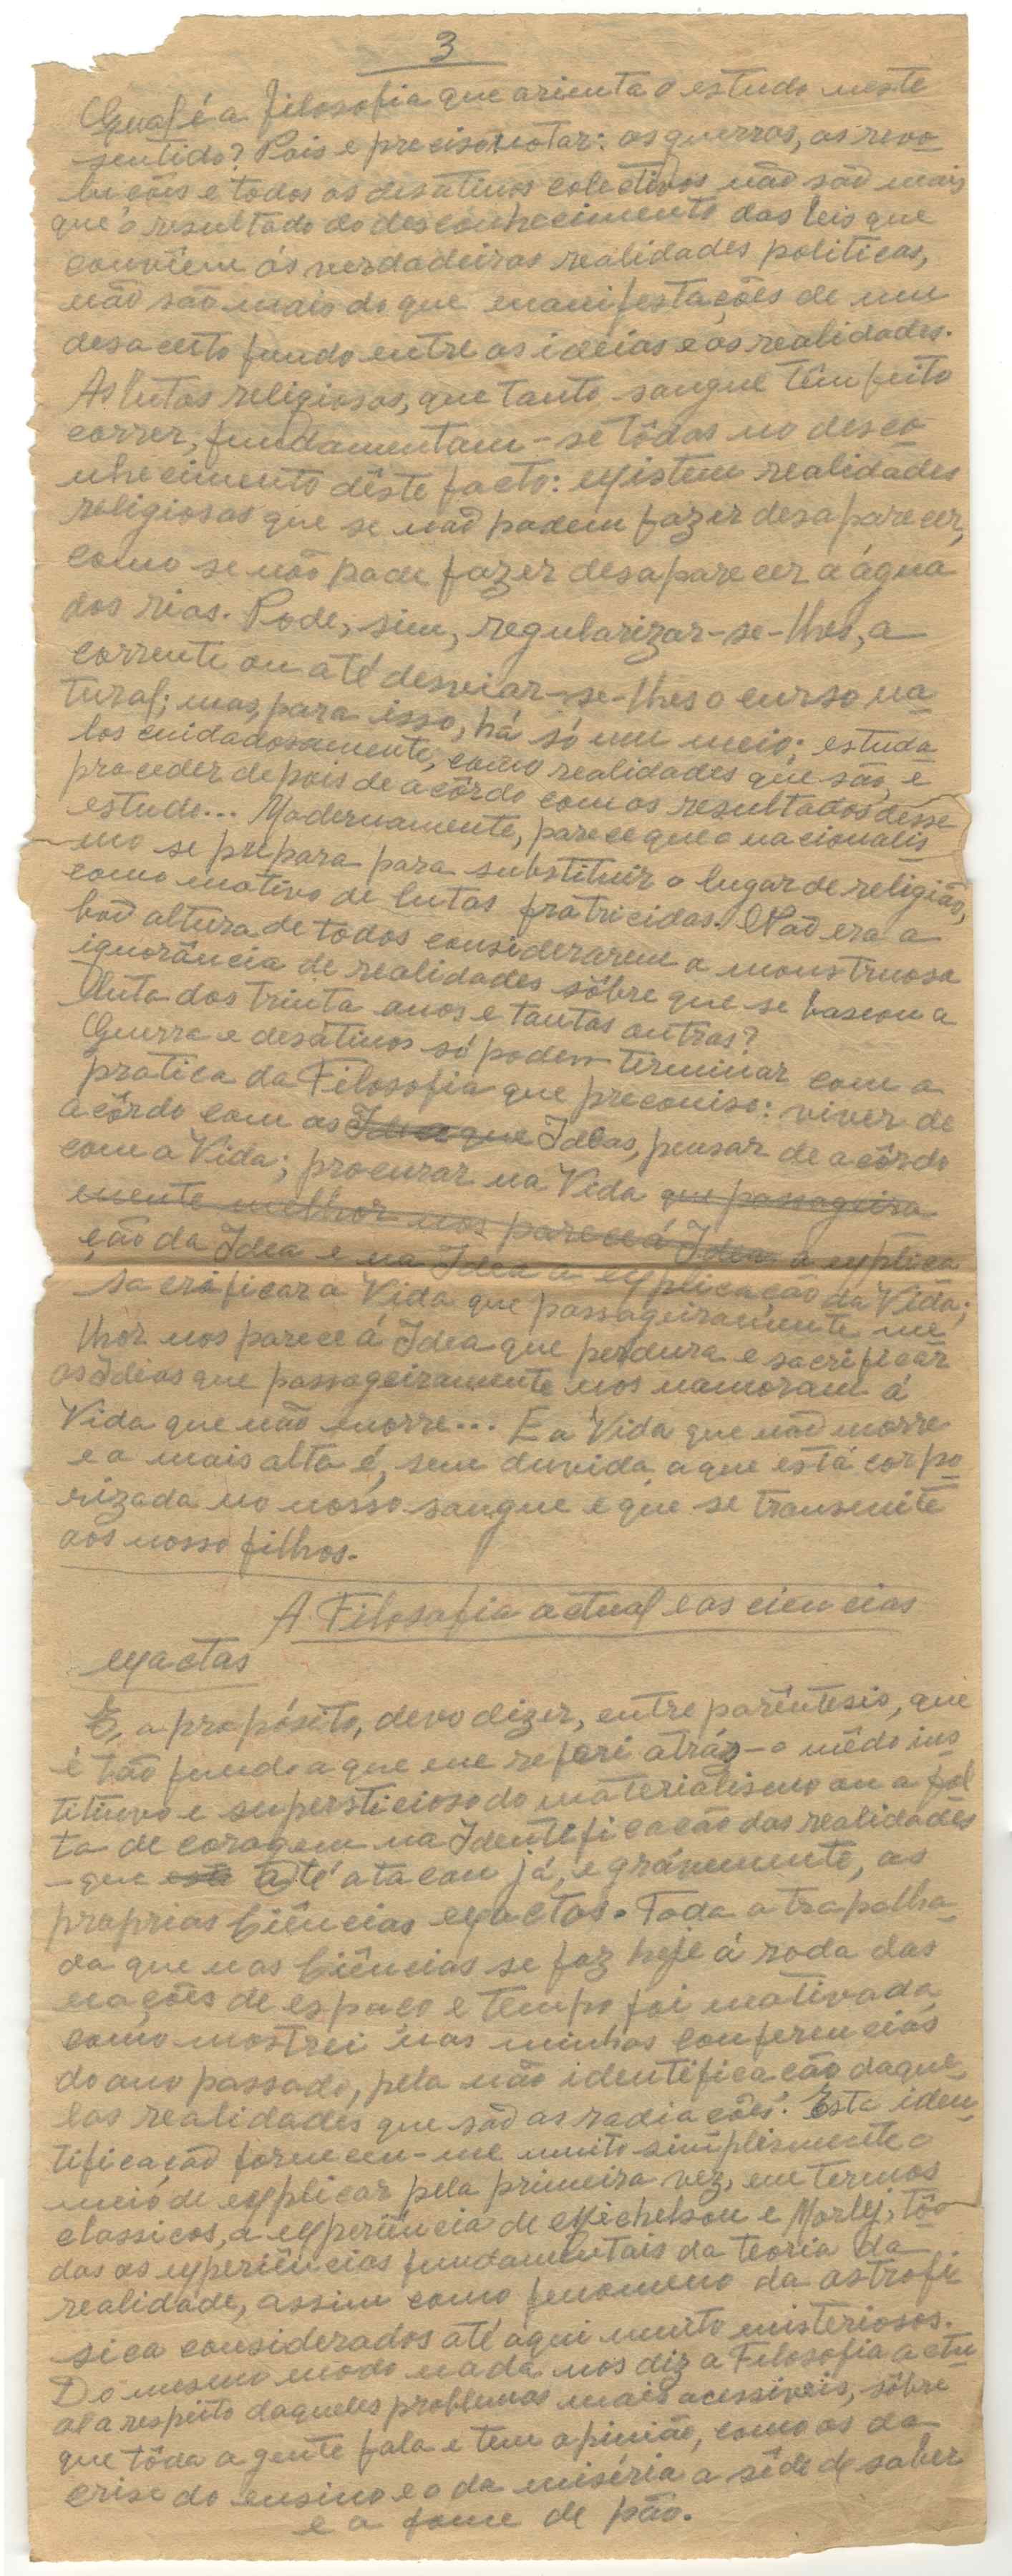 3
Qual é a filosofia que orienta o estudo neste
sentido? Pois e preciso notar: as guerras, as revo-
luções e todos os desatinos colectivos não são mais
que o resultado do desconhecimento das leis que
convêm ás verdadeiras realidades politicas,
não são mais do que manifestações de um
desacerto fundo entre as ideias e as realidades.
As lutas religiosas, que tanto sangue têm feito
correr, fundamentam-se tôdas no desco-
nhecimento dêste facto: existem realidades
religiosas que se não podem fazer desaparecer,
como se não pode fazer desaparecer a água
dos rios. Pode, sim, regularizar-se-lhes, a
corrente ou até desviar-se-lhes o curso na-
tural; mas, para isso, há só um meio: estuda-
los cuidadosamente, como realidades que são, e
proceder depois de acôrdo com os resultados desse
estudo... Modernamente, parece que o nacionalis-
mo se prepara para substituir o lugar de religião,
como motivo de lutas fratricidas. Não era a
boa altura de todos considerarem a monstruosa
ignorância de realidades sôbre que se baseou a
luta dos trinta anos e tantas outras?
Guerra e desatinos só podem terminar com a
pratica da Filosofia que preconiso: viver de
acôrdo com as Idea que Ideas, pensar de acôrdo
com a Vida; procurar na Vida que passageira
mente melhor nos parece á Idea a explica
ção da Idea e na Idea a explicação da Vida;
sacrificar a Vida que passageiramente me-
lhor nos parece á Idea que perdura e sacrificar
as Ideias que passageiramente nos namoram á
Vida que não morre... E a Vida que não morre
e a mais alta é, sem duvida, a que está corpo-
rizada no nosso sangue e que se transmite
aos nosso filhos.
A Filosofia actual e as ciencias
exactas
E, a propósito, devo dizer, entre parêntesis, que
é tão fundo a que me referi atrás - o mêdo ins-
titinvo e supersticioso do materialismo ou a fal
ta de coragem na Identificação das realidades
- que está até atacou já, e gràvemente, as
proprias Ciências exactas. Toda a trapalha-
da que nas Ciências se faz hoje á roda das
nações de espaço e tempo foi motivada,
como mostrei nas minhas conferencias
do ano passado, pela não identificação daque-
las realidades que são as radiações. Esta iden-
tificação forneceu-me muito simplismente o
meio de explicar pela primeira vez, em termos
classicos, a experiência de Michelson e Morley, tô-
das as experiências fundamentais da teoria da
realidade, assim como fenomeno da astrofi-
sica considerados até aqui muito misteriosos.
Do mesmo modo nada nos diz a Filosofia actu-
al a respeito daqueles problemas mais acessiveis, sôbre
que tôda a gente fala e tem opinião, como os da
crise do ensino e o da miséria a sêde de saber
e a fome de pão.